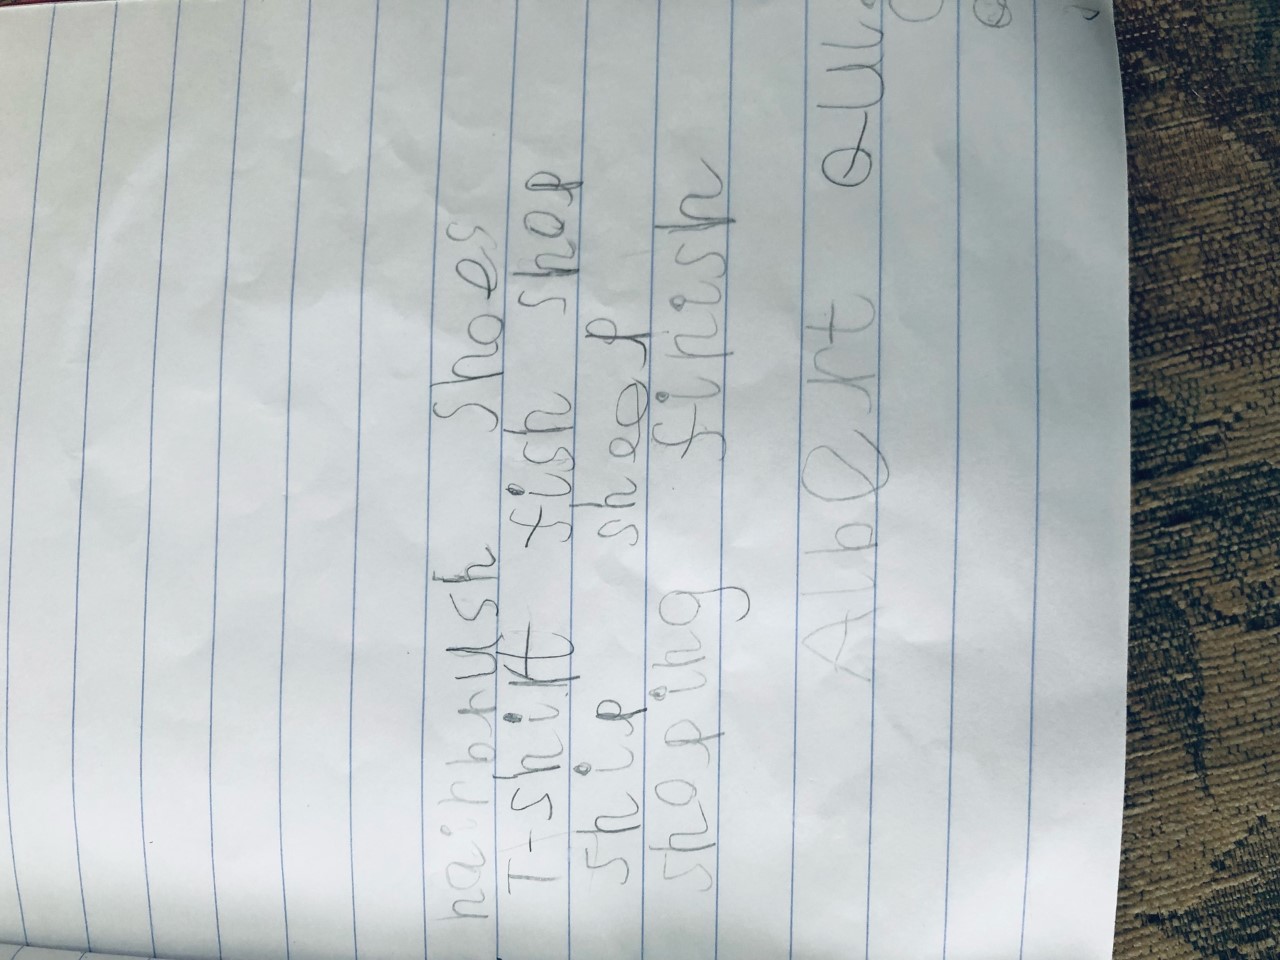 hairbrush shoes
T-shirt fish shop
ship sheep
shoping finish
Albert